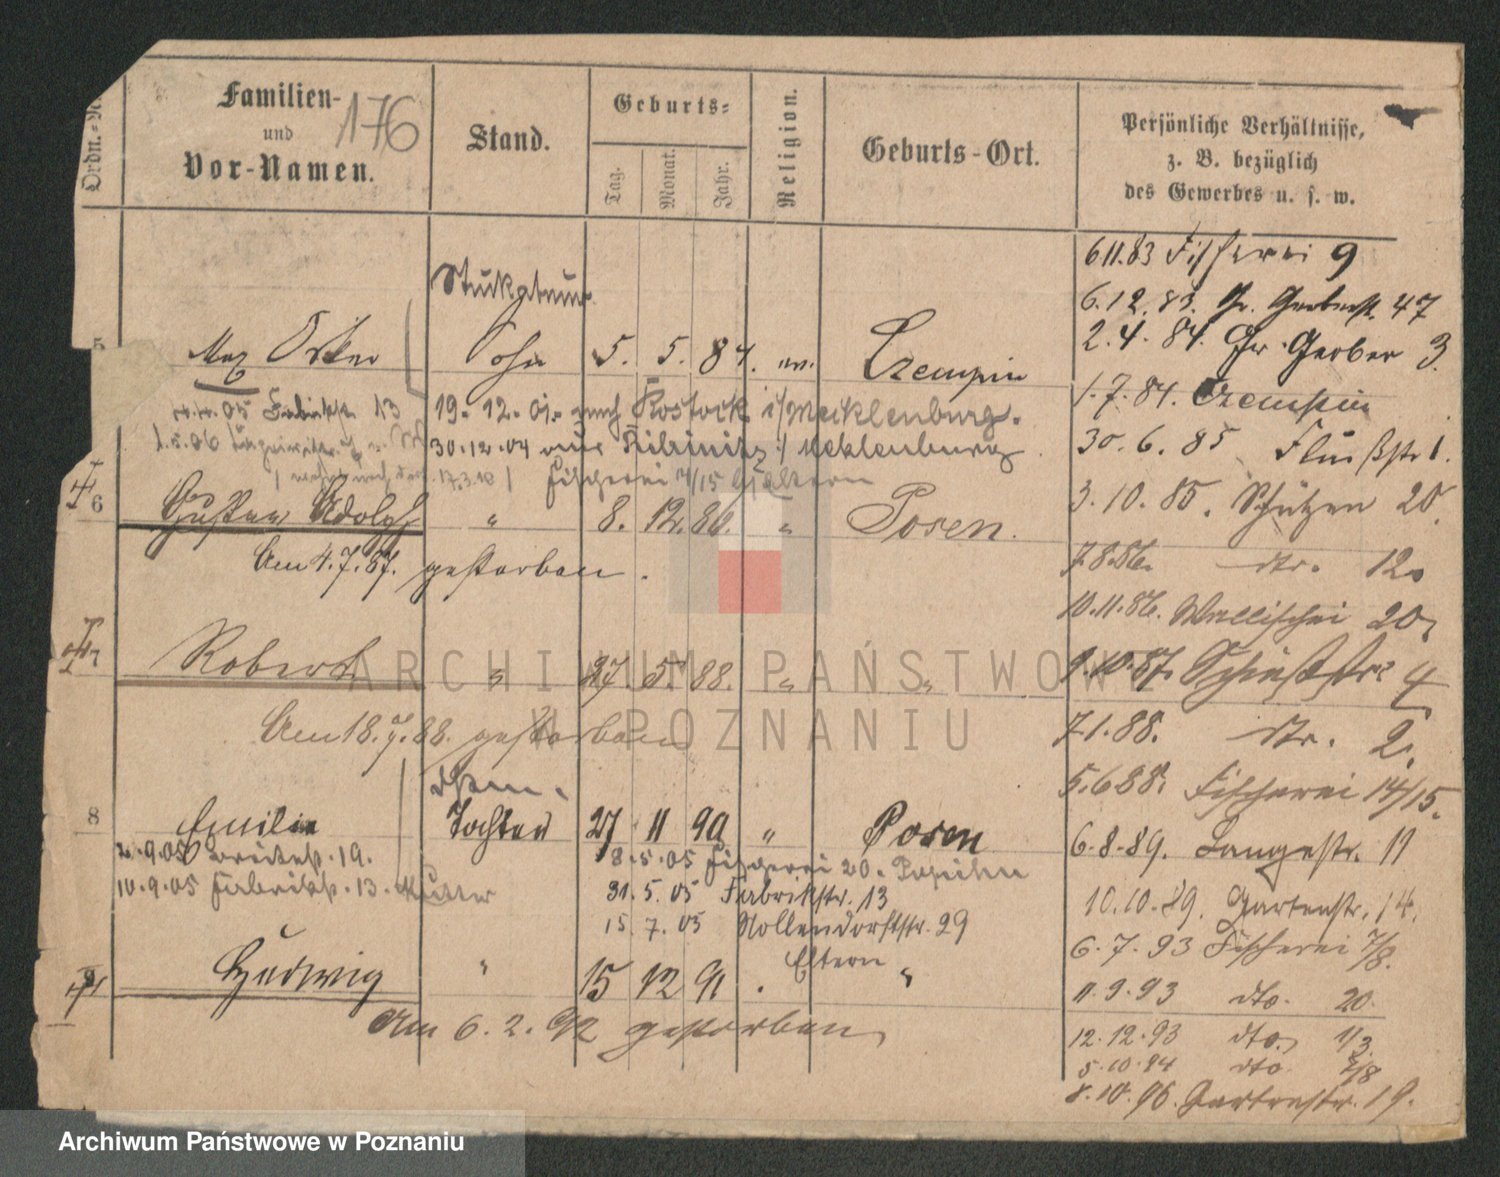 Ordn.-N
Familien-
und
Vor-Namen.
176
Stand.
Geburts-
Tag.
Monat.
Jahr.
Religion.
Geburts-Ort.
Persönliche Verhältnisse,
z. B. bezüglich
des Gewerbes u. s. w.
6.11.83 Fischerei 9
Stukateur
6.12.83. Gr. Gerberstr. 47
2.4.84. Gr. Gerber 3.
5 Max Oskar Sohn 5. 5. 84. Czempin
1.7.84. Czempin
05 Fabrikstr. 13 19.12.01. nach Rostock i/Mecklenburg.
1.5.06 30.12.04 Ribnitz i/Meklenburg
30.6.85 Flußstr 1.
17.3.10 Fischerei 14/15 Eltern
6 Gustav Adolph " 8. 12. 86. " Posen.
3.10.85. Schützen 20.
Am 4.7.87. gestorben.
7.8.86. dto. 12
10.11.86. Wallischei 20
7 Robert " 27. 5. 88. " "
9.10.87. Schießstr 4
Am 18.7.88. gestorben
7.1.88. dto. 2.
5.6.88. Fischerei 14/15.
8 Emilie Tochter 27 11 90 " Posen
6.8.89. Langestr. 11
9.05 Breitestr. 19. 8.5.05 Fischerei 20.
10.9.05 Fabrikstr. 13. Mutter 31.5.05 Fabrikstr. 13
10.10.89. Gartenstr. 14.
15.7.05 Nollendorfstr. 29
Eltern
6.7.93 Fischerei 7/8.
9 Hedwig " 15 12 91 . "
11.9.93 dto. 20.
Am 6.2.92 gestorben
12.12.93 dto. 1/3
5.10.94 dto. 7/8
8.10.96. Gartenstr. 19.
ARCHIWUM PAŃSTWOWE
W POZNANIU
Archiwum Państwowe w Poznaniu